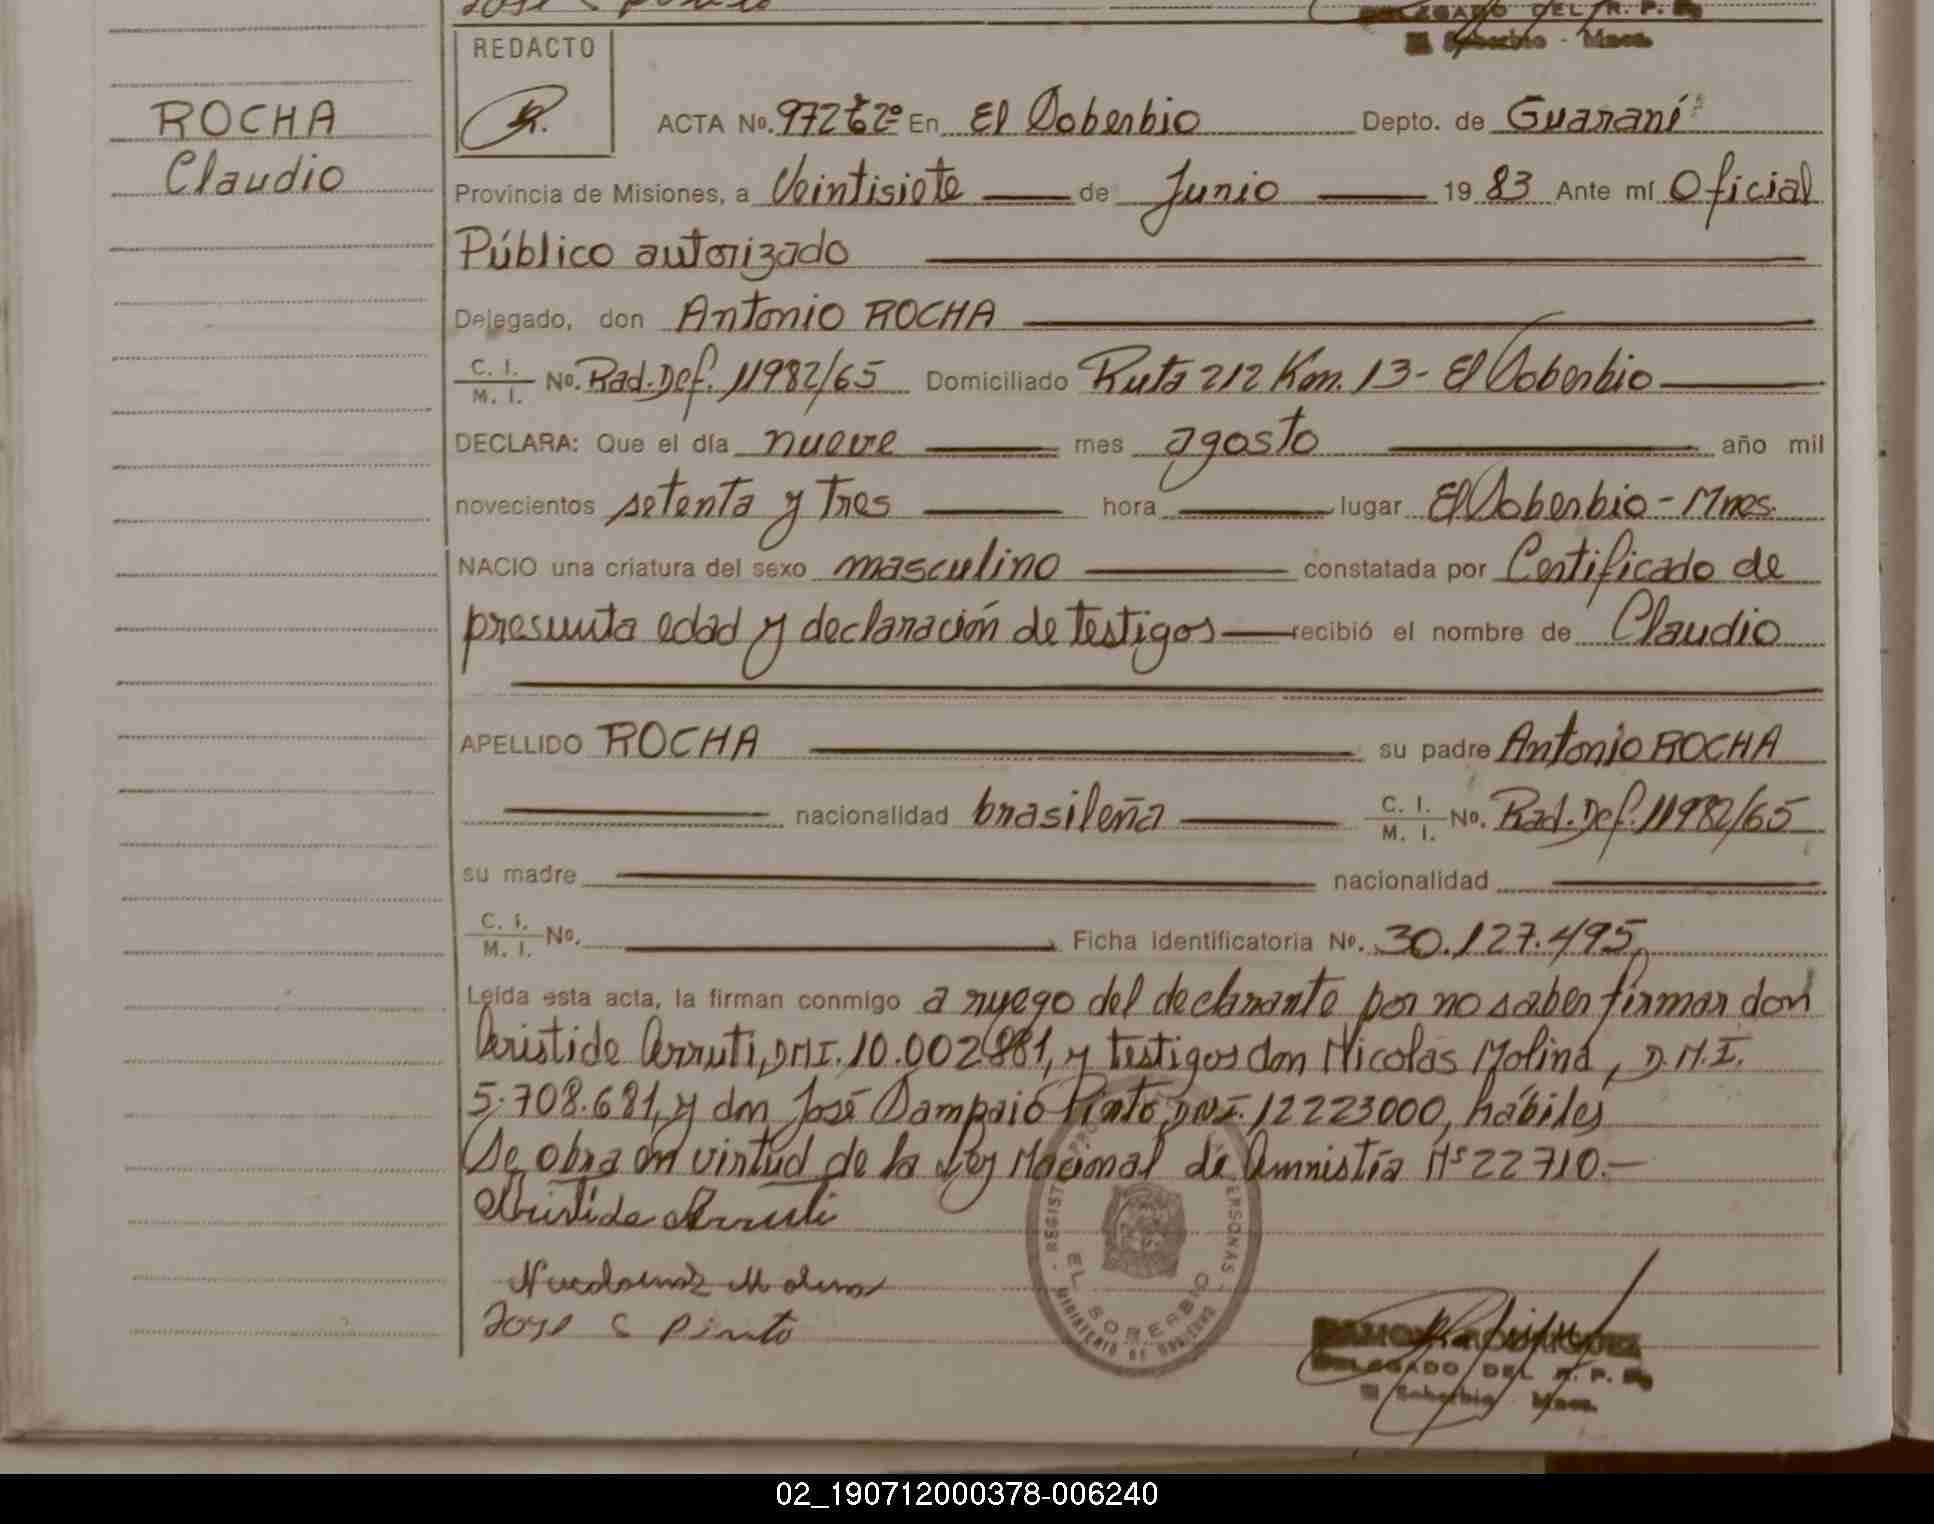 José S Pinto
DELEGADO DEL R. P. P.
El Soberbio - Mnes.
REDACTO
ROCHA
Claudio
ACTA No. 972 t 2º En El Soberbio Depto. de Guaraní
Provincia de Misiones, a Veintisiete de Junio 1983 Ante mí Oficial
Público autorizado
Delegado, don Antonio ROCHA
C. I. / M. I. No. Rad. Def. 11982/65 Domiciliado Ruta 212 Km. 13 - El Soberbio
DECLARA: Que el día nueve mes agosto año mil
novecientos setenta y tres hora lugar El Soberbio - Mnes.
NACIO una criatura del sexo masculino constatada por Certificado de
presunta edad y declaración de testigos recibió el nombre de Claudio
APELLIDO ROCHA su padre Antonio ROCHA
nacionalidad brasileña C. I. / M. I. No. Rad. Def. 11982/65
su madre nacionalidad
C. I. / M. I. No. Ficha Identificatoria No. 30.127.495
Leída esta acta, la firman conmigo a ruego del declarante por no saber firmar don
Aristide Arruti, DNI. 10.002.881, y testigos don Nicolas Molina, D.N.I.
5.708.681, y don José Sampaio Pinto, DNI. 12223000, hábiles
Se obra en virtud de la Ley Nacional de Amnistía Nº 22710.-
Aristide Arruti
Molina
José S Pinto
REGISTRO PERSONAS
EL SOBERBIO
MINISTERIO DE GOBIERNO
RAMON RODRIGUEZ
DELEGADO DEL R. P. P.
El Soberbio - Mnes.
02_190712000378-006240